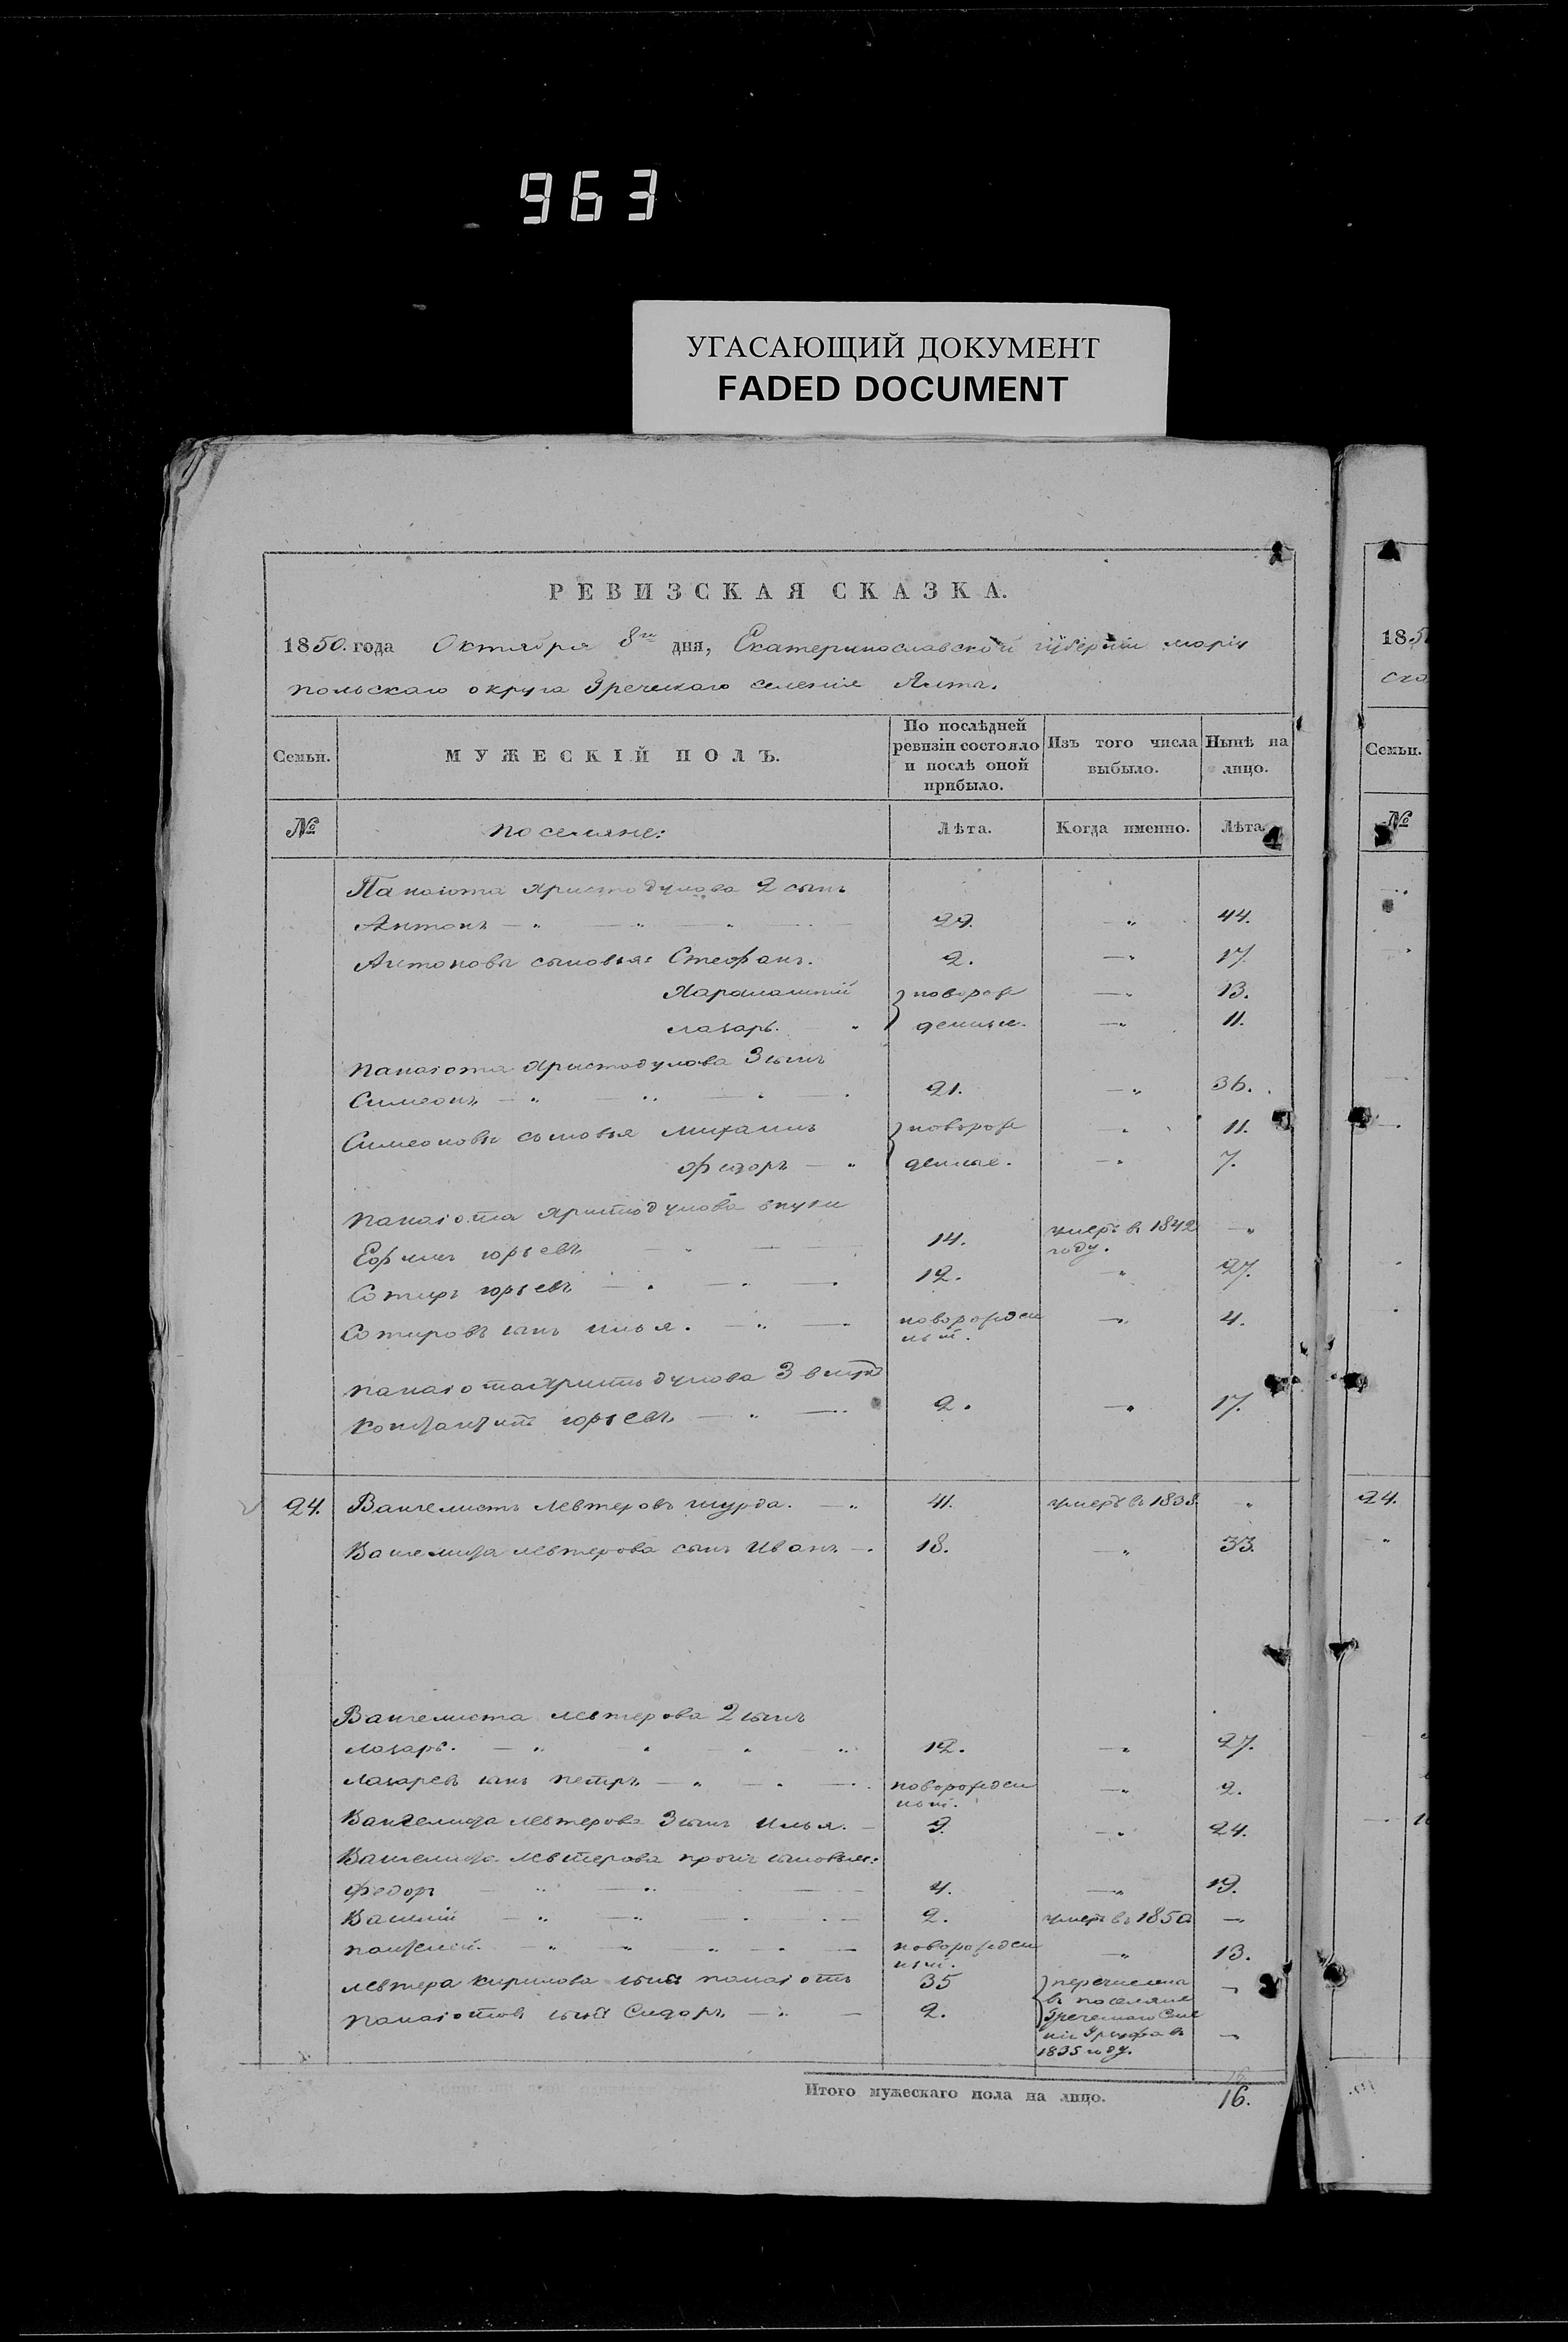 963
УГАСАЮЩИЙ ДОКУМЕНТ
FADED DOCUMENT
РЕВИЗСКАЯ СКАЗКА.
1850. года Октября 8го дня, Екатеринославской губернии мариу
польскаго округа Греческаго селения Ялта.
Семьи. МУЖЕСКІЙ ПОЛЪ. По послѣдней ревизіи состояло и послѣ оной прибыло. Изъ того числа выбыло. Нынѣ на лицо.
№ поселяне: Лѣта. Когда именно. Лѣта.
Панаіота Христодулова 2 сынъ
Антонъ 29. 44.
Антоновы сыновья: Стефанъ. 2. 17.
Харалампій новорож 13.
лазарь. денные. 11.
панаіота Христодулова 3 сынъ
Симеонъ 21. 36.
Симеоновы сыновья михаилъ новорож 11.
федоръ денные. 7.
панаіота Христодулова внуки
Ефимъ юрьевъ 14. умеръ в 1842 году.
Сотиръ юрьевъ 12. 27.
Сотировъ сынъ илья. новорожден ный. 4.
панаіота Христодулова 3 внукъ
константинъ юрьевъ 2. 17.
24. Вангелистъ левтеровъ шурда. 41. умеръ в 1838.
Вангелиста левтерова сынъ Иванъ 18. 33.
Вангелиста левтерова 2 сынъ
лазарь. 12. 27.
лазаревъ сынъ петръ новорожден ный. 2.
Вангелиста левтерова 3 сынъ илья. 9. 24.
Вангелиста левтерова проч. сыновья:
федоръ 4. 19.
Василій 2. умеръ въ 1850
новорожден ный. 13.
левтера кирилова сынъ панаіотъ 35 перечислены
панаіотовъ сынъ Сидоръ 2. в поселяне
Греческаго Селе
нія в
1835 году.
Итого мужескаго пола на лицо. 16.
185
Семьи.
№
24.